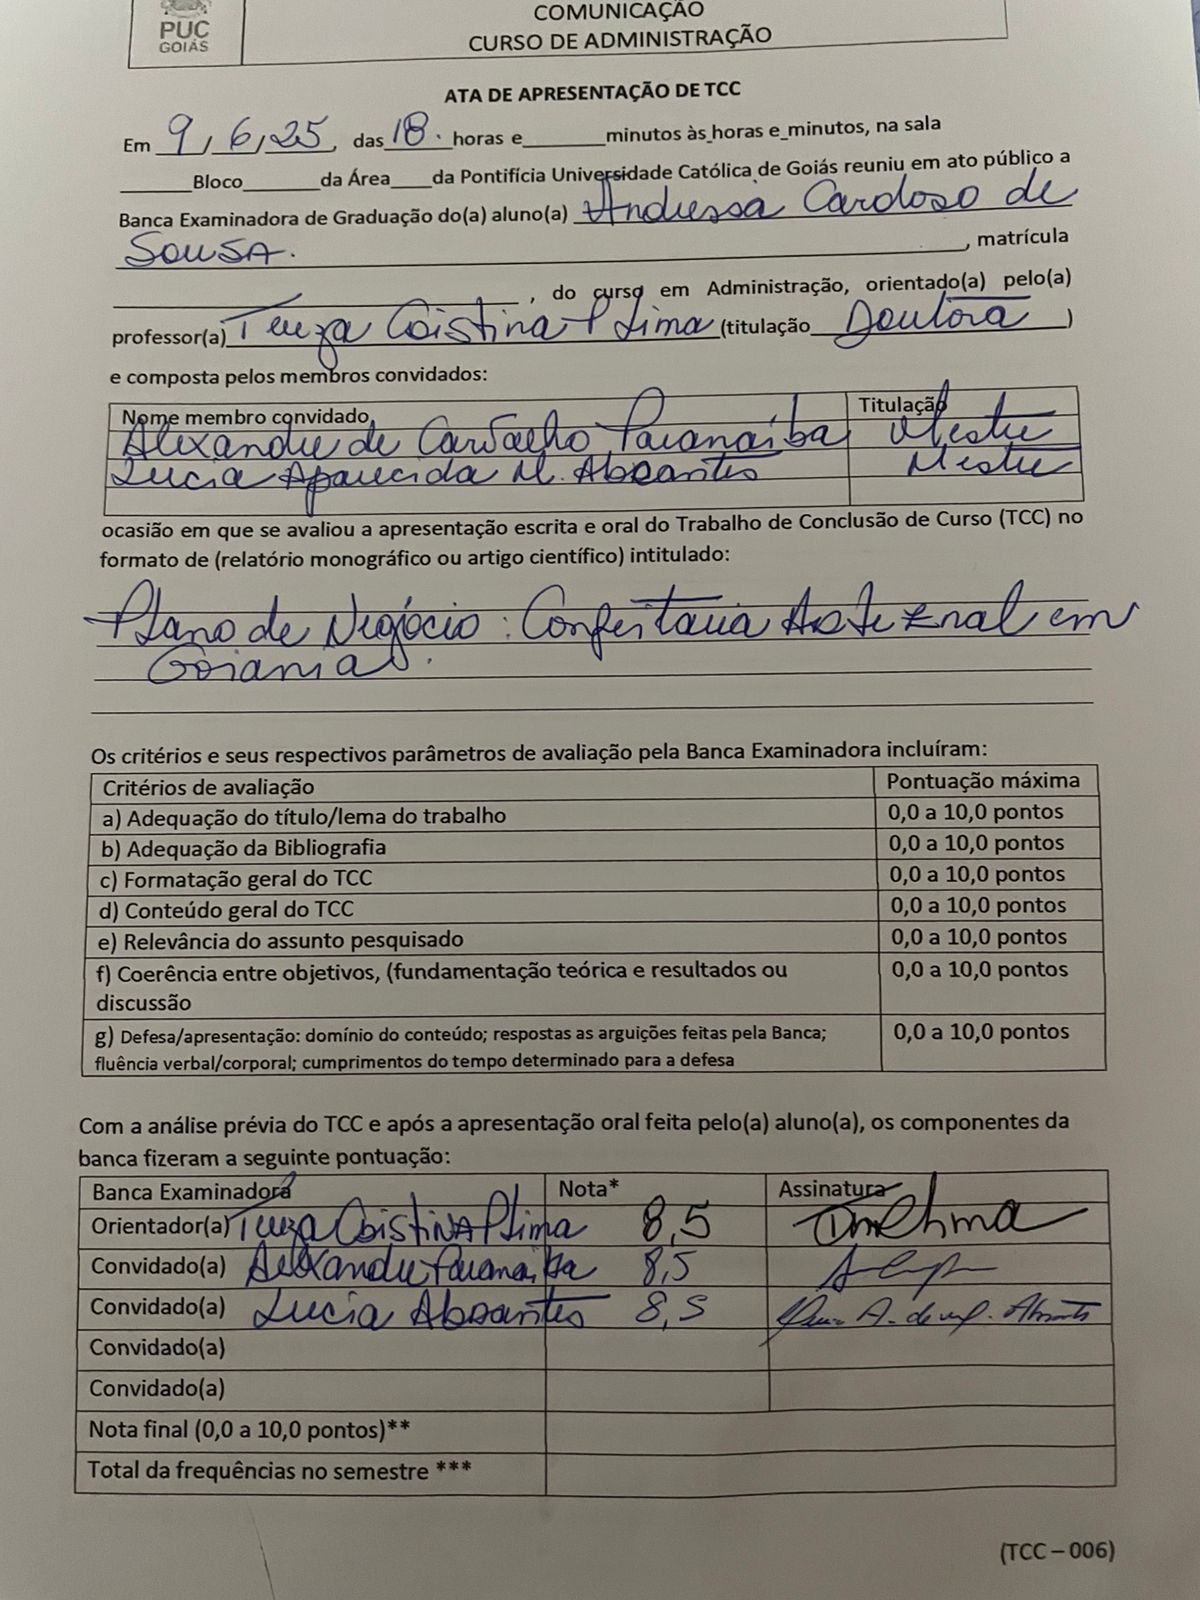 PUC
GOIÁS
COMUNICAÇÃO
CURSO DE ADMINISTRAÇÃO
ATA DE APRESENTAÇÃO DE TCC
Em 9, 6, 25, das 18. horas e_______minutos às_horas e_minutos, na sala
_______Bloco_______da Área____da Pontifícia Universidade Católica de Goiás reuniu em ato público a
Banca Examinadora de Graduação do(a) aluno(a) Andressa Cardoso de
Sousa. , matrícula
, do curso em Administração, orientado(a) pelo(a)
professor(a) Tereza Cristina P Lima (titulação Doutora )
e composta pelos membros convidados:
Nome membro convidado Titulação
Alexandre de Carvalho Paranaiba Mestre
Lucia Aparecida M. Abrantes Mestre
ocasião em que se avaliou a apresentação escrita e oral do Trabalho de Conclusão de Curso (TCC) no
formato de (relatório monográfico ou artigo científico) intitulado:
Plano de Negócio: Confeitaria Artezenal em
Goiania.
Os critérios e seus respectivos parâmetros de avaliação pela Banca Examinadora incluíram:
Critérios de avaliação Pontuação máxima
a) Adequação do título/lema do trabalho 0,0 a 10,0 pontos
b) Adequação da Bibliografia 0,0 a 10,0 pontos
c) Formatação geral do TCC 0,0 a 10,0 pontos
d) Conteúdo geral do TCC 0,0 a 10,0 pontos
e) Relevância do assunto pesquisado 0,0 a 10,0 pontos
f) Coerência entre objetivos, (fundamentação teórica e resultados ou 0,0 a 10,0 pontos
discussão
g) Defesa/apresentação: domínio do conteúdo; respostas as arguições feitas pela Banca; 0,0 a 10,0 pontos
fluência verbal/corporal; cumprimentos do tempo determinado para a defesa
Com a análise prévia do TCC e após a apresentação oral feita pelo(a) aluno(a), os componentes da
banca fizeram a seguinte pontuação:
Banca Examinadora Nota* Assinatura
Orientador(a) Tereza Cristina P Lima 8,5
Convidado(a) Alexandre Paranaiba 8,5
Convidado(a) Lucia Abrantes 8,5
Convidado(a)
Convidado(a)
Nota final (0,0 a 10,0 pontos)**
Total da frequências no semestre ***
(TCC – 006)